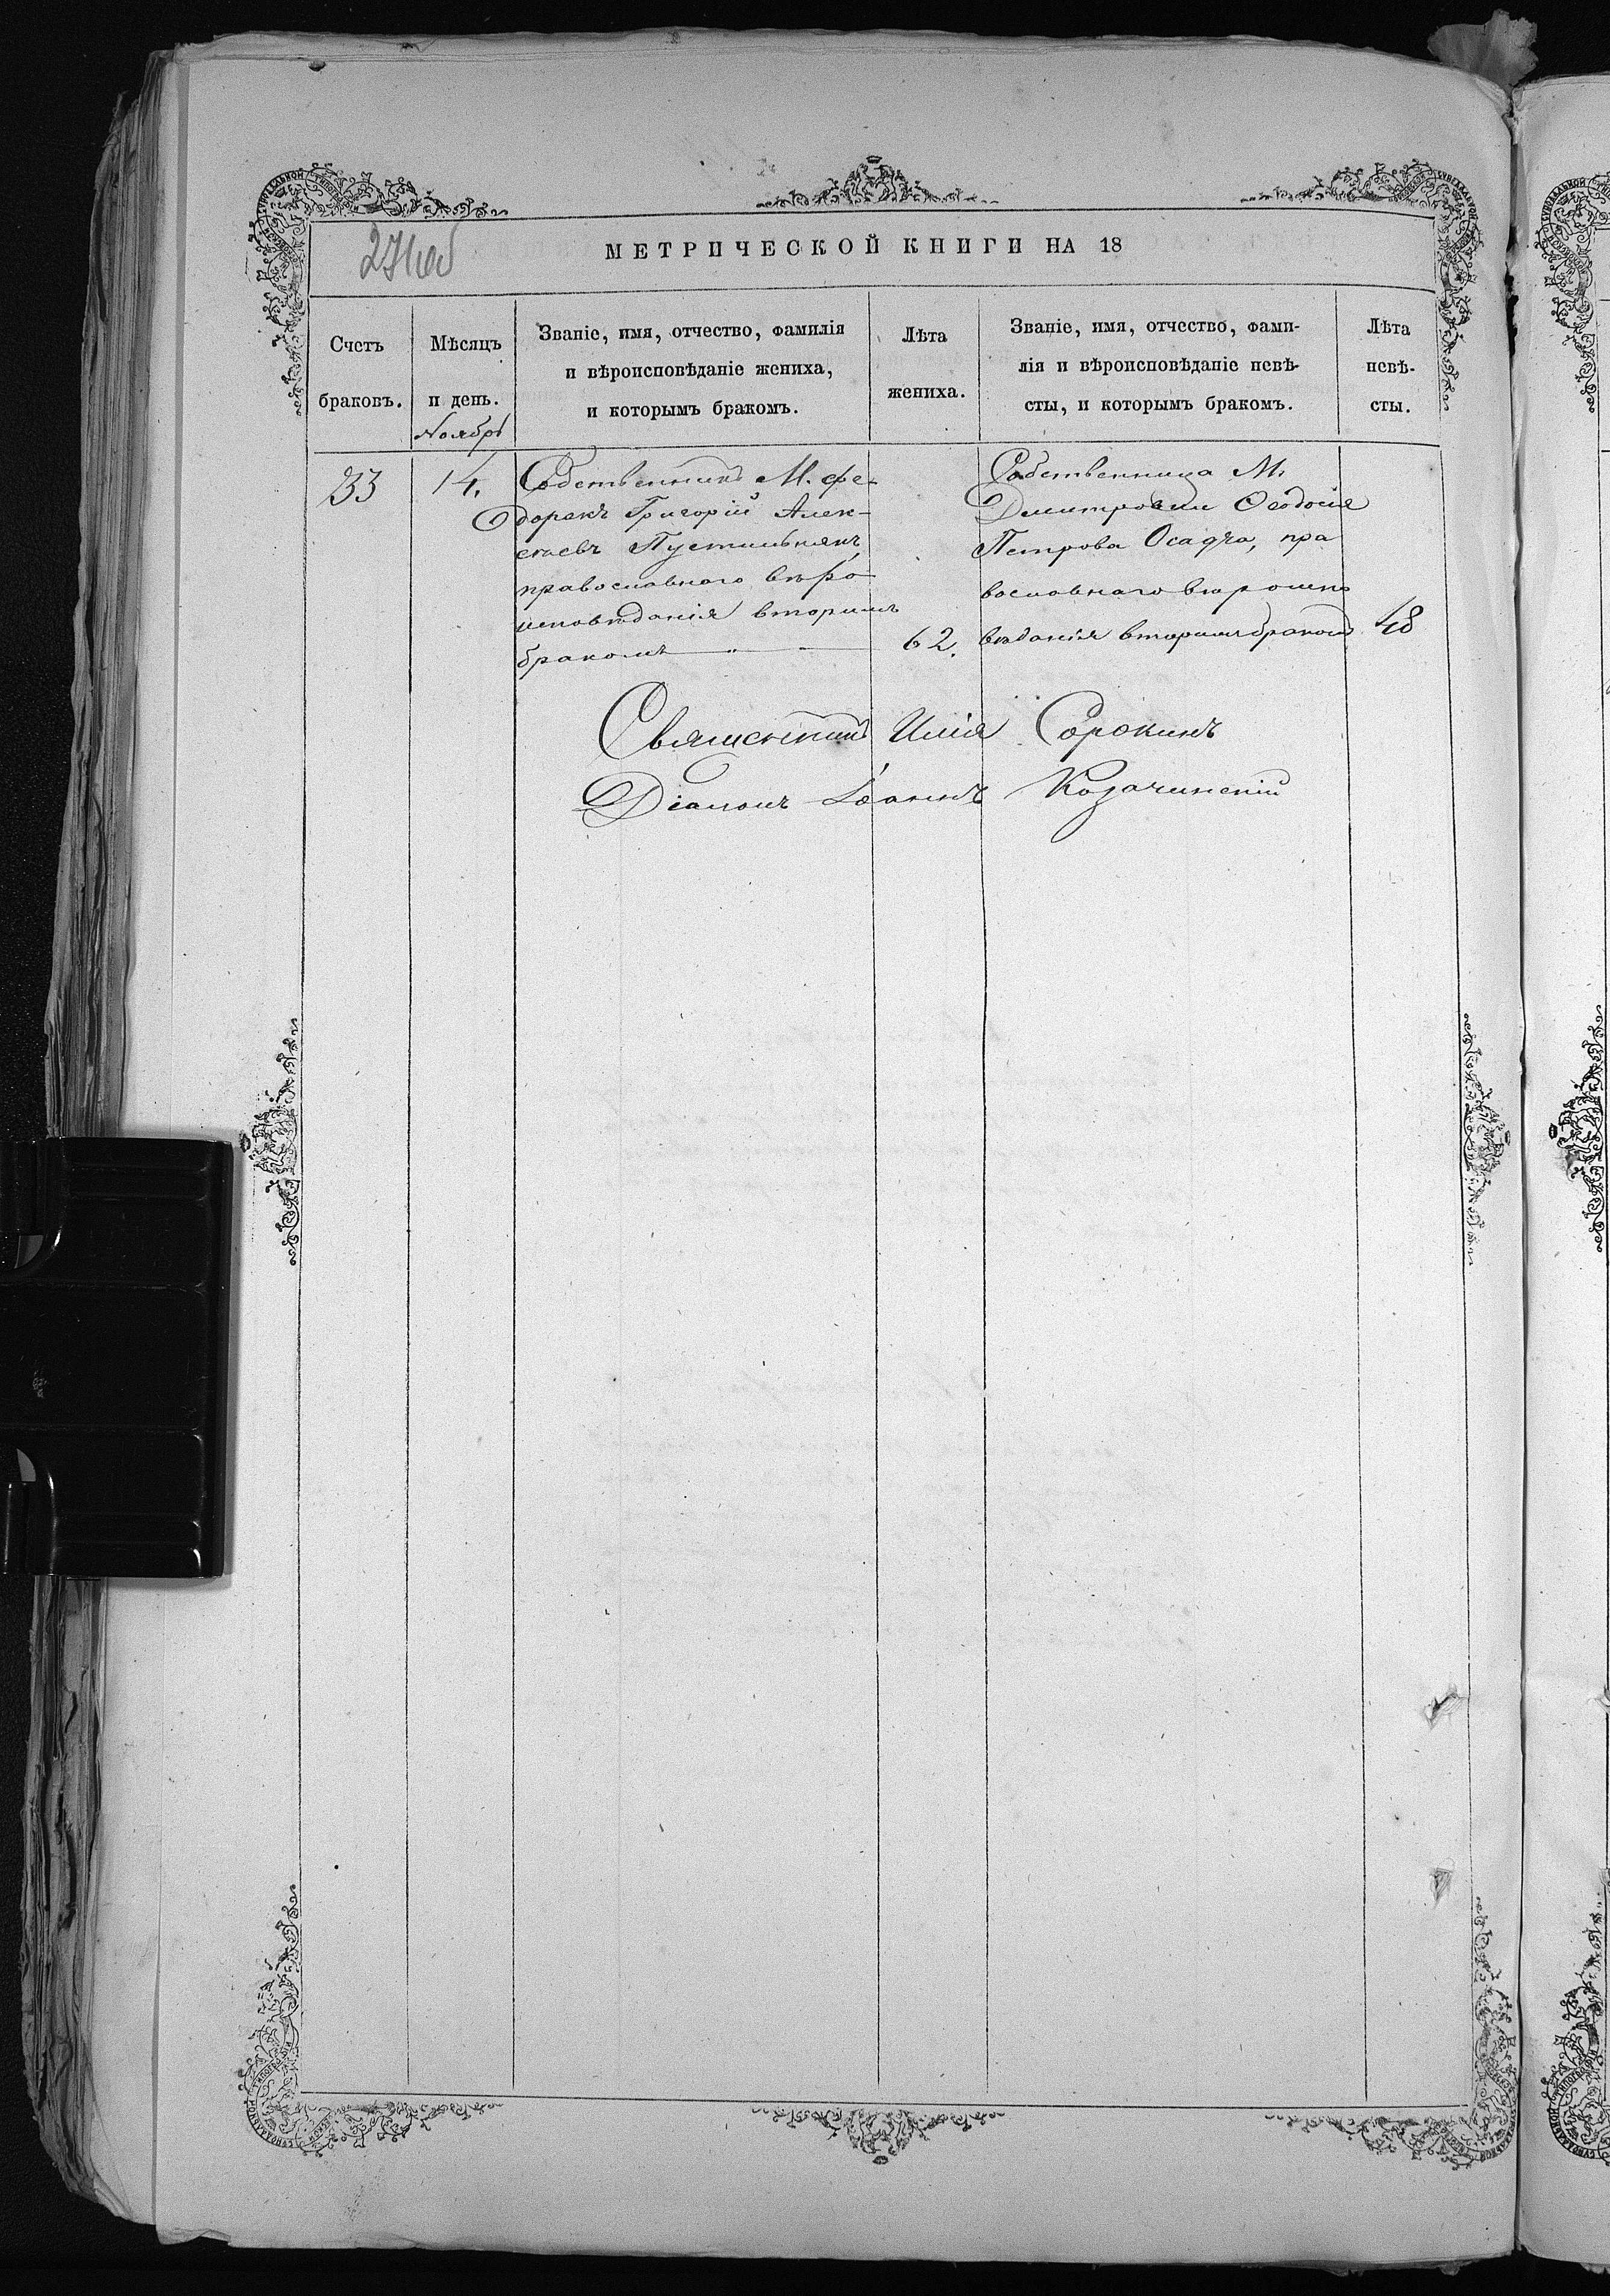 271 об
МЕТРИЧЕСКОЙ КНИГИ НА 18
Счетъ
браковъ.
Мѣсяцъ
и день.
Ноябрь
Званіе, имя, отчество, фамилія
и вѣроисповѣданіе жениха,
и которымъ бракомъ.
Лѣта
жениха.
Званіе, имя, отчество, фами-
лія и вѣроисповѣданіе невѣ-
сты, и которымъ бракомъ.
Лѣта
невѣ-
сты.
33
14.
Собственникъ М. Фе-
доракъ Григорій Алек-
сѣевъ Пустильнякъ,
православнаго вѣро
исповѣданія вторымъ
бракомъ — " —
62.
Собственница М.
Дмитровки Ѳеодосія
Петрова Осадча, пра
вославнаго вѣроиспо
вѣданія вторымъ бракомъ
48
Священникъ Илія Сорокинъ
Діаконъ Іоаннъ Козачинскій